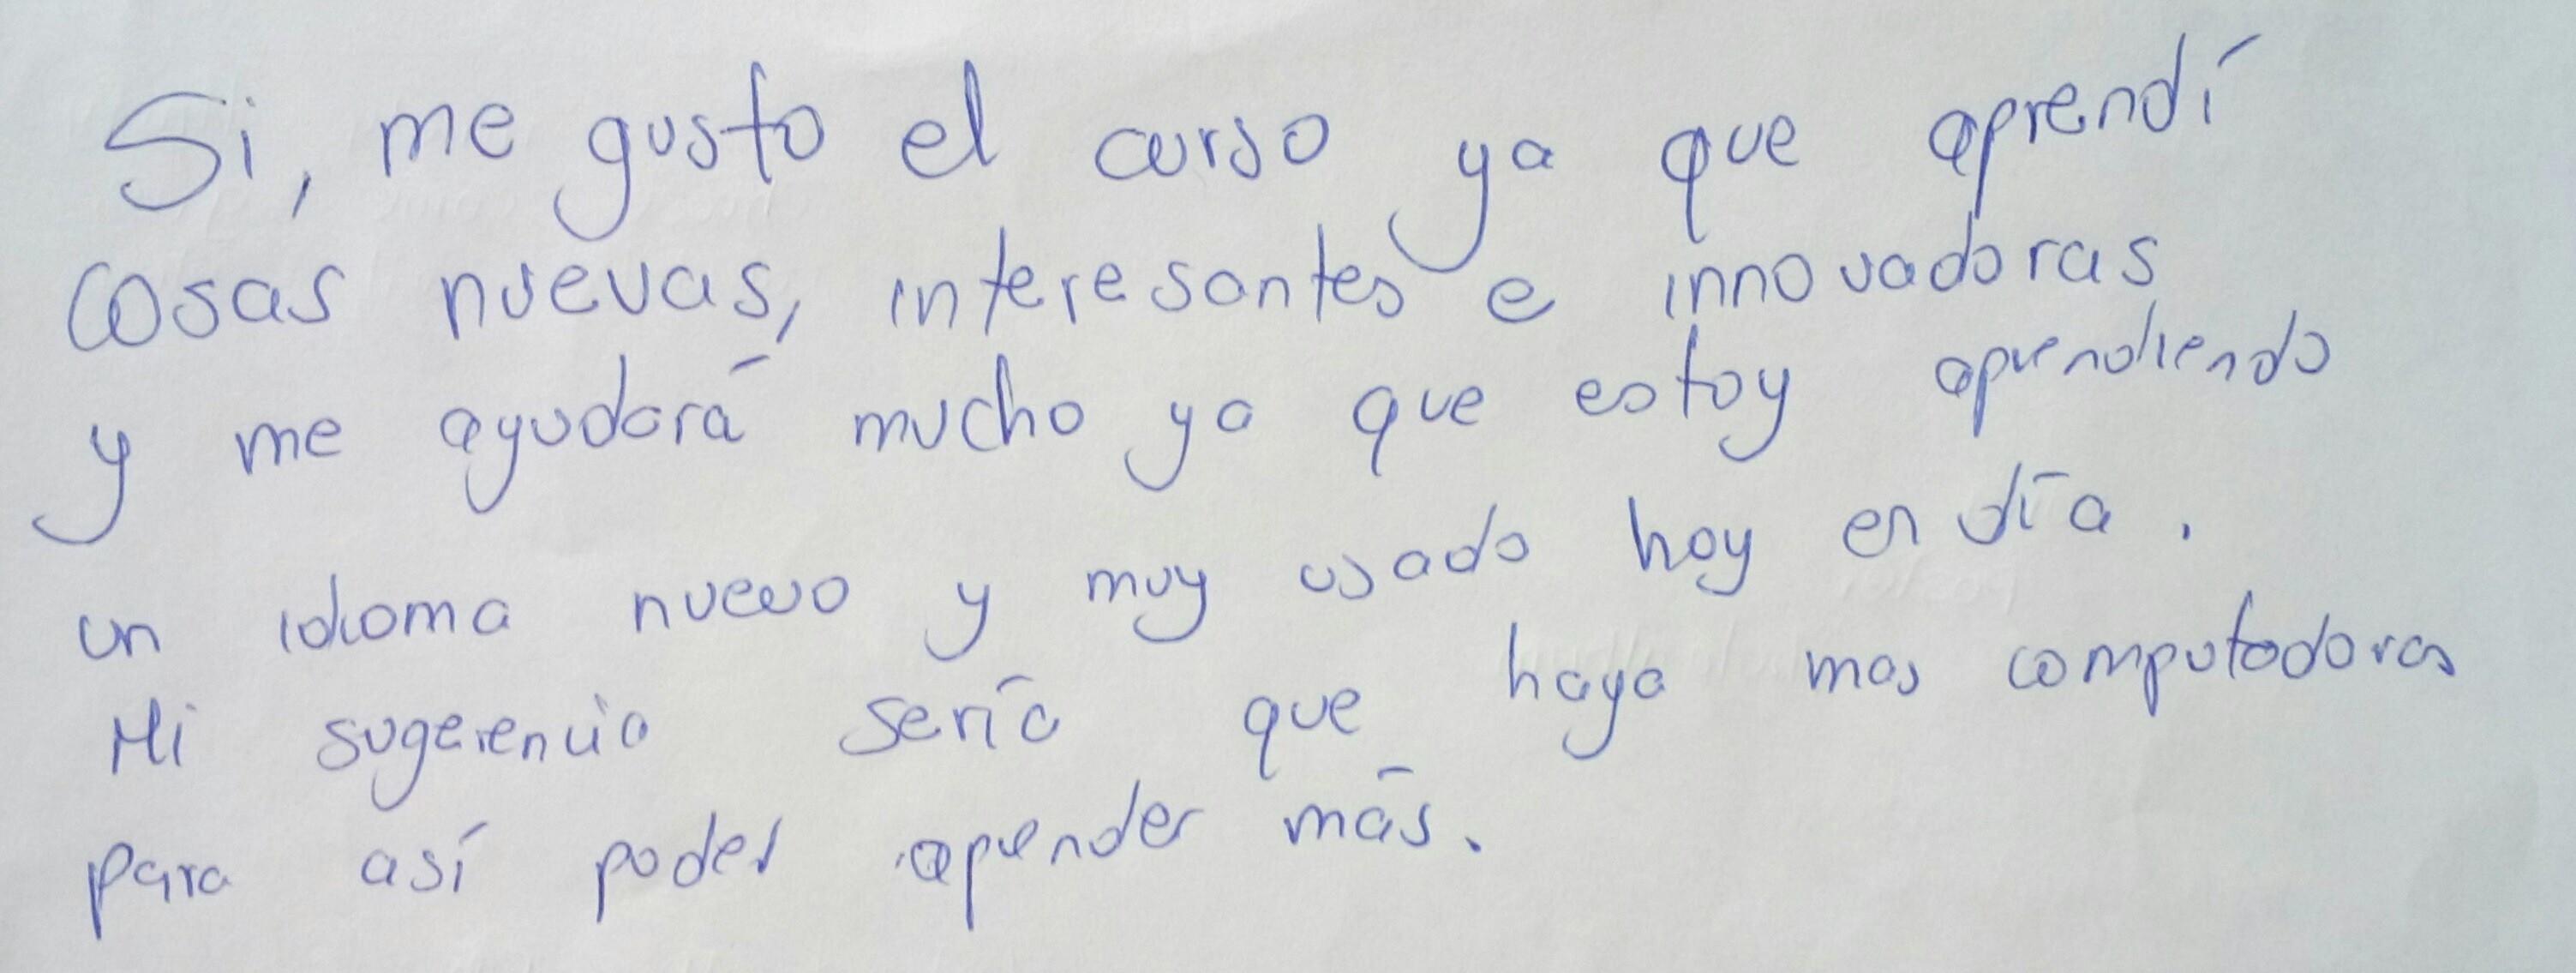 Si, me gusto el curso ya que aprendí
cosas nuevas, interesantes e innovadoras
y me ayudará mucho ya que estoy aprendiendo
un idioma nuevo y muy usado hoy en día.
Mi sugerencia sería que haya mas computadoras
para así poder aprender más.